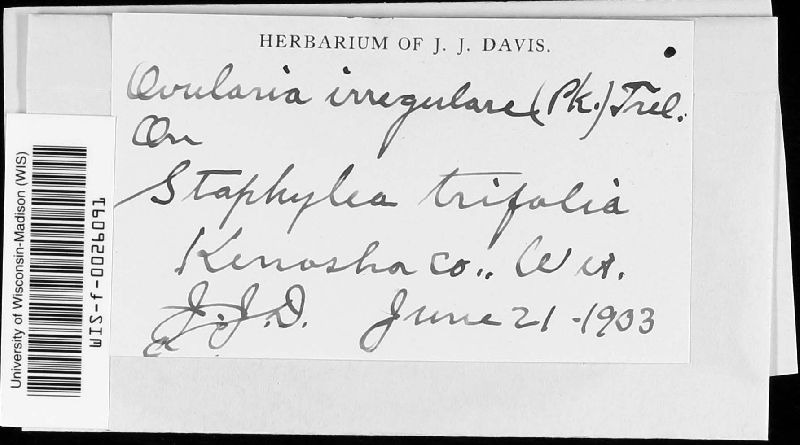 HERBARIUM OF J. J. DAVIS.
Ovularia irregulare (Pk.) Trel.
On
Staphylea trifolia
Kenosha co., Wis.
J.J.D. June 21-1933
University of Wisconsin-Madison (WIS)
WIS-f-0026091